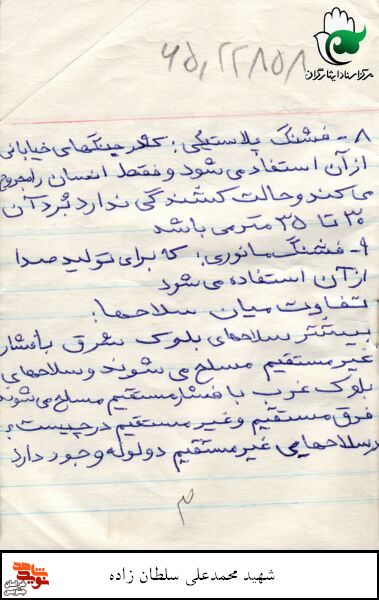 مرکز اسناد ایثارگران
۶۵,۲۲۸۵۸
۸- فشنگ پلاستیکی: که در جنگهای خیابانی
از آن استفاده می شود و فقط انسان را مجروح
می کند و حالت کشندگی ندارد بُرد آن
۳۰ تا ۳۵ متر می باشد
۹- فشنگ مانوری: که برای تولید صدا
از آن استفاده می شود
تفاوت میان سلاحها:
بیشتر سلاحهای بلوک شرق با فشار
غیر مستقیم مسلح می شوند و سلاحهای
بلوک غرب با فشار مستقیم مسلح می شوند
فرق مستقیم و غیر مستقیم در چیست؟
در سلاحهایی غیر مستقیم دو لوله وجود دارد
۳
شهید محمدعلی سلطان زاده
نوید شاهد
خراسان جنوبی